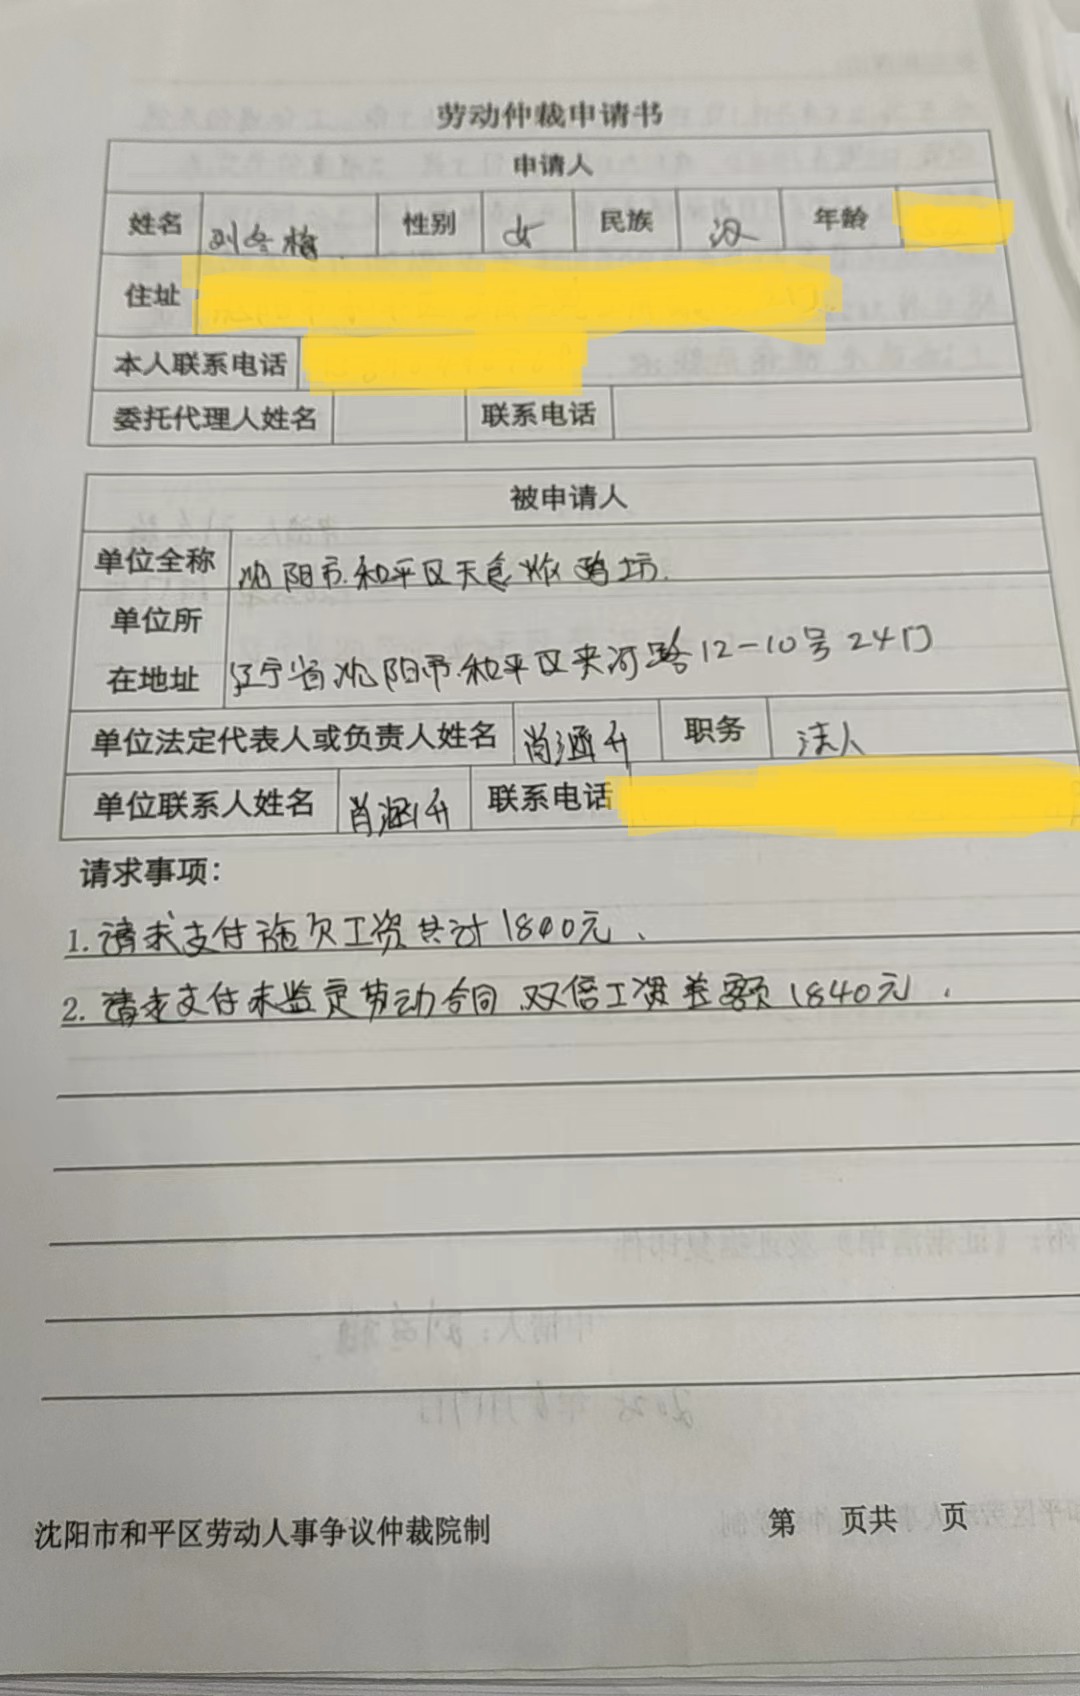 劳动仲裁申请书
申请人
姓名 刘冬梅 性别 女 民族 汉 年龄
住址
本人联系电话
委托代理人姓名 联系电话
被申请人
单位全称 沈阳市和平区天食炸鸡坊
单位所
在地址 辽宁省沈阳市和平区夹河路12-10号24门
单位法定代表人或负责人姓名 肖涵升 职务 法人
单位联系人姓名 肖涵升 联系电话
请求事项:
1. 请求支付施欠工资共计1840元、
2. 请求支付未监定劳动合同双倍工资差额1840元.
沈阳市和平区劳动人事争议仲裁院制 第 页共 页